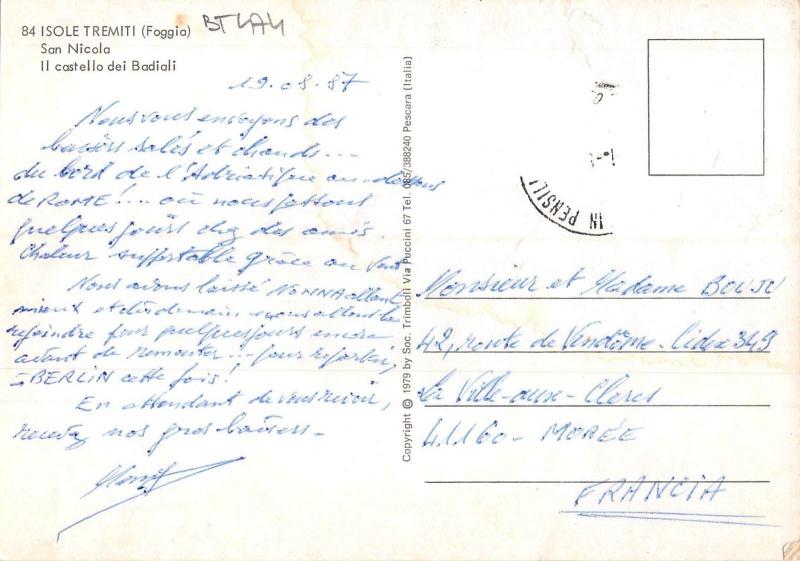 84 ISOLE TREMITI (Foggia)
San Nicola
Il castello dei Badiali
BT474
19.08.87
Nous vous envoyons des
baisers salés et chauds...
du bord de l'Adriatique au-dessous
de ROME!... où nous passons
quelques jours chez des amis.
Chaleur supportable grâce au vent
Nous avons laissé NONNA allant
mieux et dès demain nous allons la
rejoindre pour quelques jours encore
avant de remonter... pour repartir,
à BERLIN cette fois!
En attendant de vous revoir,
recevez nos gros baisers -
Copyright © 1979 by Soc. Trimboli Via Puccini 67 Tel. 085/388240 Pescara (Italia)
IN PENSILI
Monsieur et Madame BOUJU
42, route de Vendôme - Cidex 349
la Ville-aux-Clercs
41160 - MORÉE
FRANCIA